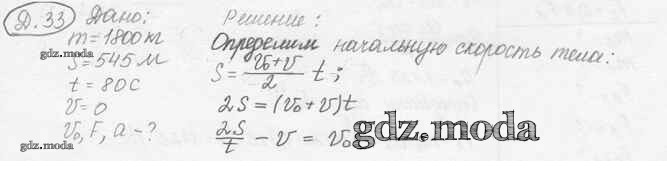 Д. 33
Дано:
m = 1800 кг
S = 545 м
t = 80 с
v = 0
v₀, F, a - ?
Решение:
Определим начальную скорость тела:
S = (v₀+v)/2 t;
2S = (v₀+v)t
2S/t - v = v₀
gdz.moda
gdz.moda
gdz.moda